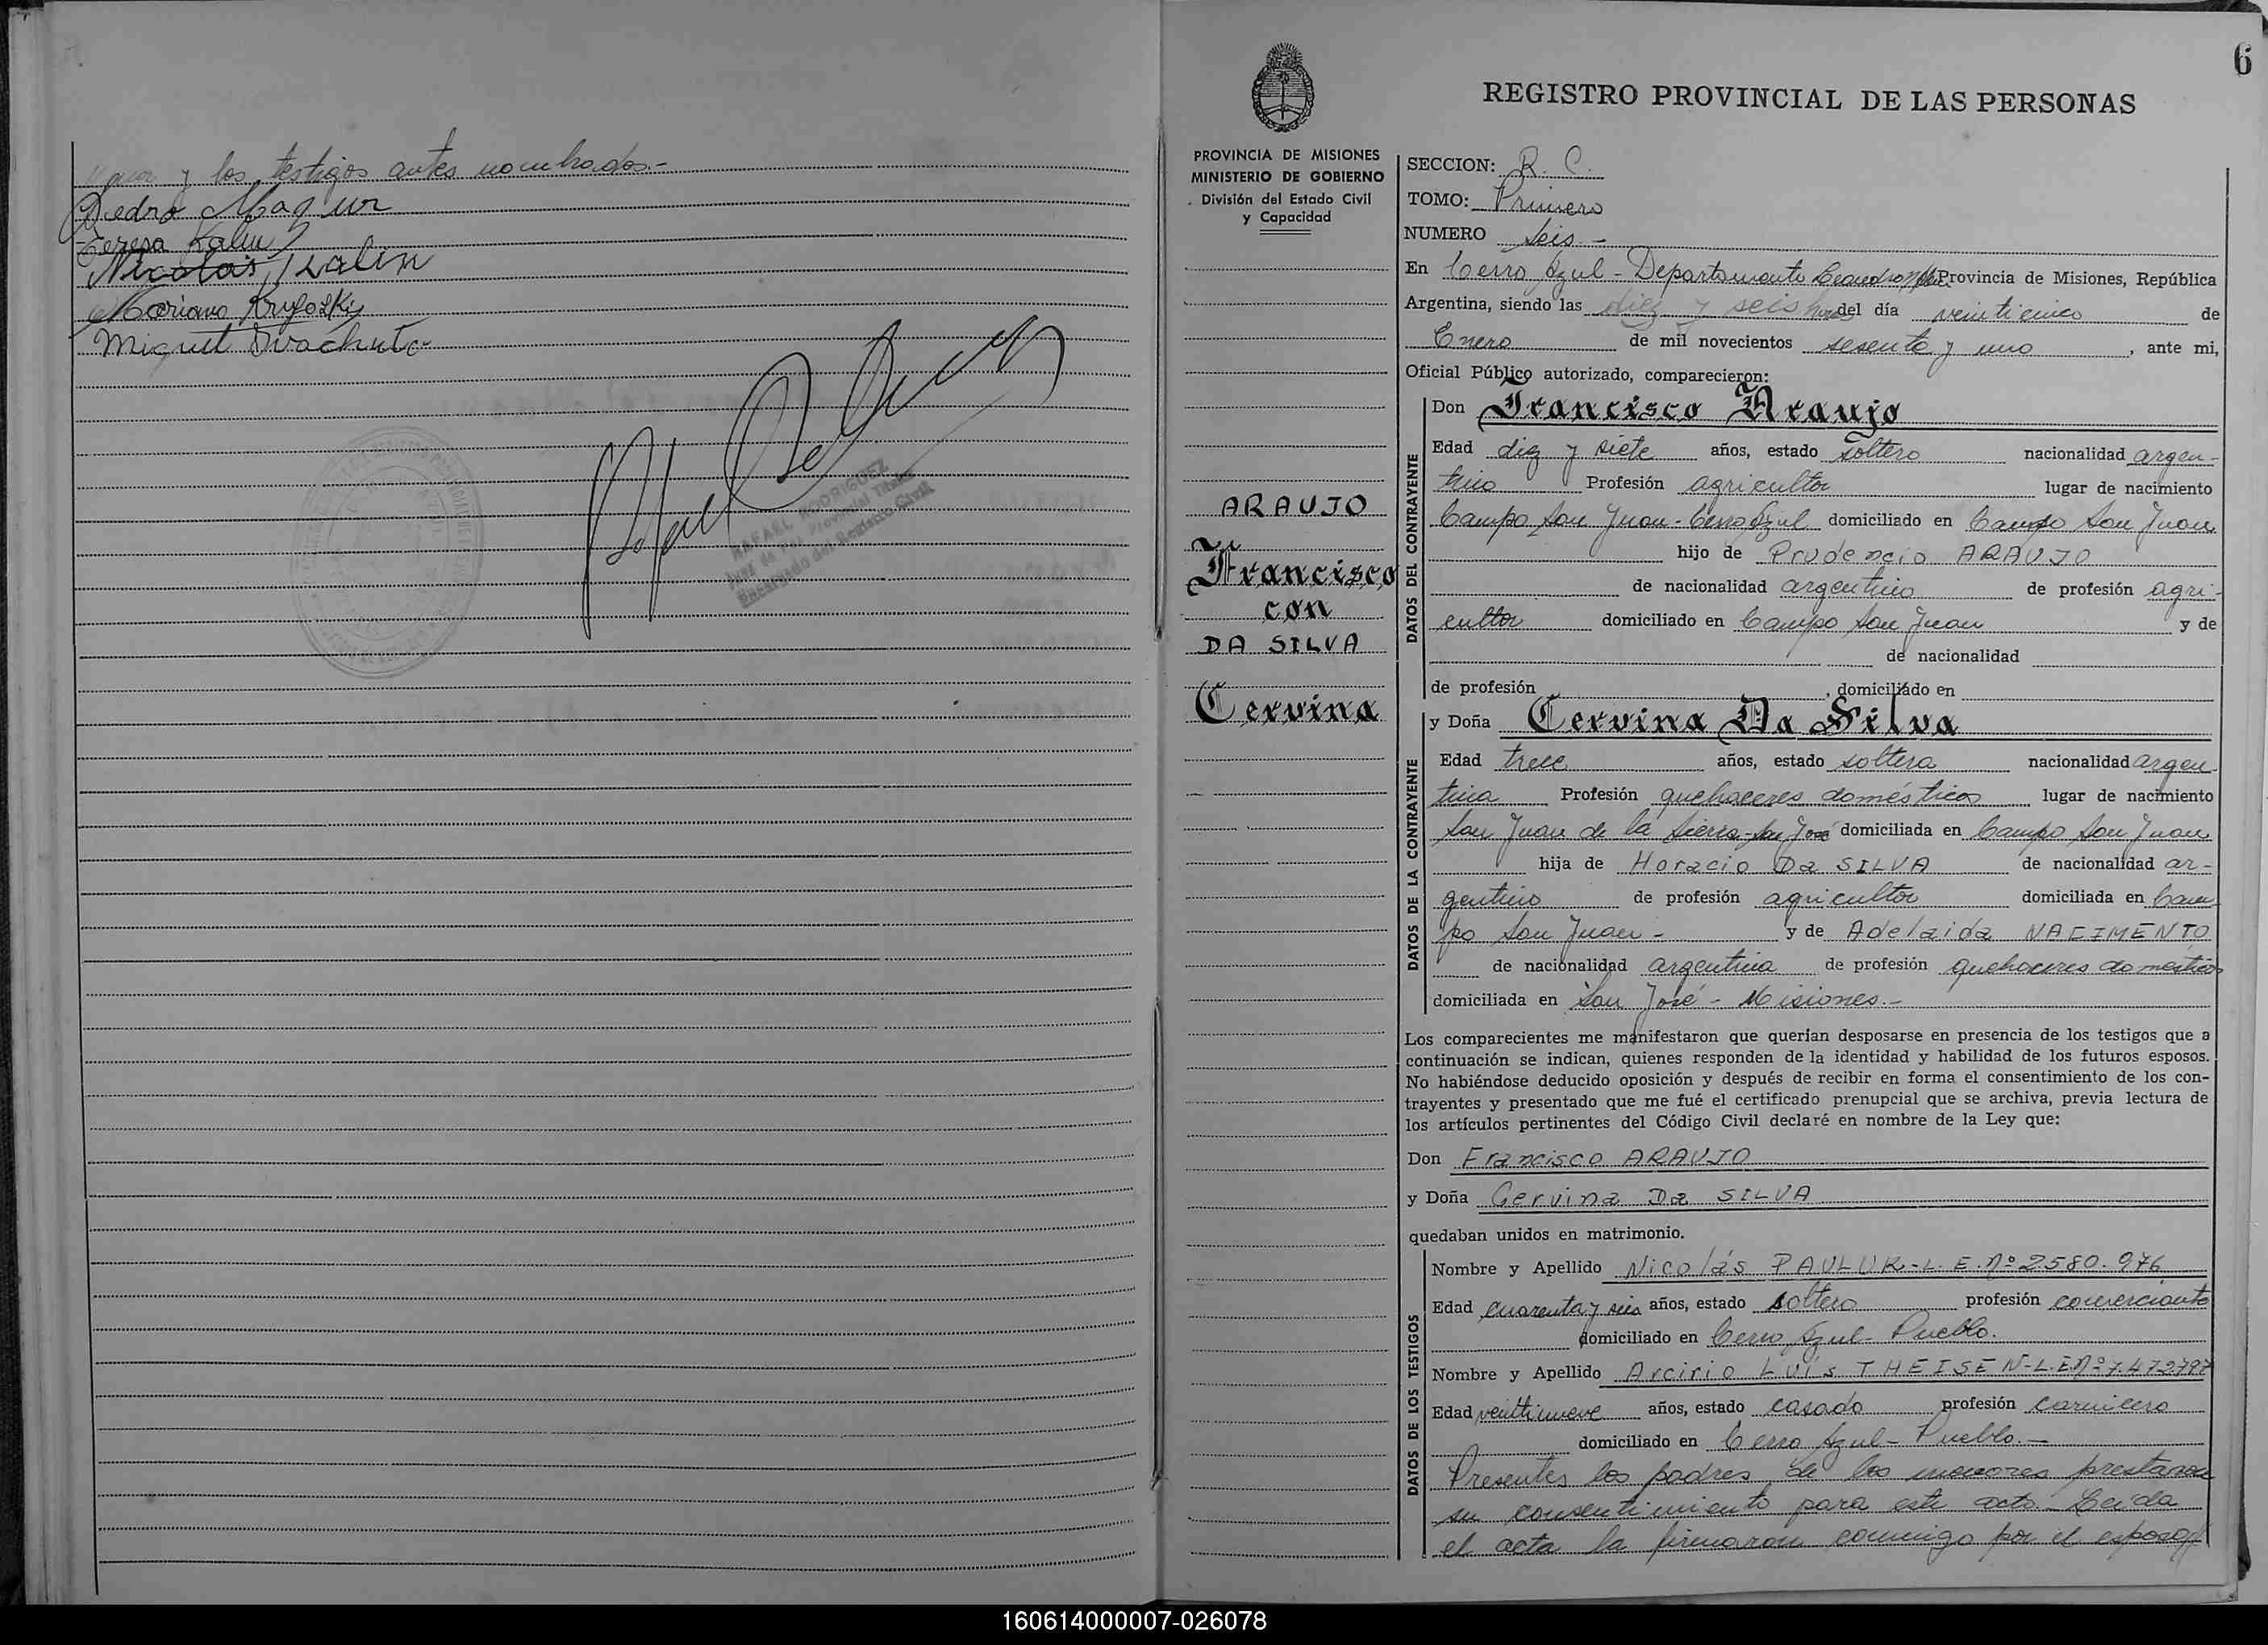 y los testigos antes nombrados.-
Pedro Mazur
Teresa Kalin
Nicolás Kalin
Mariano Krygoski
Miguel Ivachuta
RAFAEL RODRIGUEZ
Juez de Paz Provincial Titular
Encargado del Registro Civil
6
REGISTRO PROVINCIAL DE LAS PERSONAS
PROVINCIA DE MISIONES
MINISTERIO DE GOBIERNO
División del Estado Civil
y Capacidad
ARAUJO
Francisco
con
DA SILVA
Cervina
SECCION: R. C.
TOMO: Primero
NUMERO Seis.-
En Cerro Azul - Departamento Leandro N. Alem Provincia de Misiones, República
Argentina, siendo las diez y seis horas del día veinticinco de
Enero de mil novecientos sesenta y uno, ante mi,
Oficial Público autorizado, comparecieron:
DATOS DEL CONTRAYENTE
Don Francisco Araujo
Edad diez y siete años, estado soltero nacionalidad argen-
tino Profesión agricultor lugar de nacimiento
Campo San Juan - Cerro Azul domiciliado en Campo San Juan
hijo de Prudencio ARAUJO
de nacionalidad argentino de profesión agri-
cultor domiciliado en Campo San Juan y de
de nacionalidad
de profesión , domiciliado en
DATOS DE LA CONTRAYENTE
y Doña Cervina Da Silva
Edad trece años, estado soltera nacionalidad argen-
tina Profesión quehaceres domésticos lugar de nacimiento
San Juan de la Sierra - San José domiciliada en Campo San Juan
hija de Horacio Da SILVA de nacionalidad ar-
gentino de profesión agricultor domiciliada en Cam-
po San Juan - y de Adelaida NACIMENTO
de nacionalidad argentina de profesión quehaceres domésticos
domiciliada en San José - Misiones.-
Los comparecientes me manifestaron que querían desposarse en presencia de los testigos que a
continuación se indican, quienes responden de la identidad y habilidad de los futuros esposos.
No habiéndose deducido oposición y después de recibir en forma el consentimiento de los con-
trayentes y presentado que me fué el certificado prenupcial que se archiva, previa lectura de
los artículos pertinentes del Código Civil declaré en nombre de la Ley que:
Don Francisco ARAUJO
y Doña Cervina Da SILVA
quedaban unidos en matrimonio.
DATOS DE LOS TESTIGOS
Nombre y Apellido Nicolás PAULUK.-L.E.Nº2580.976
Edad cuarenta y seis años, estado soltero profesión comerciante
domiciliado en Cerro Azul - Pueblo.
Nombre y Apellido Arcirio Luis THEISEN-L.E.Nº7.472797
Edad veintinueve años, estado casado profesión carnicero
domiciliado en Cerro Azul - Pueblo.-
Presentes los padres de los menores prestaron
su consentimiento para este acto.- Leída
el acta la firmaron conmigo por el esposo
160614000007-026078